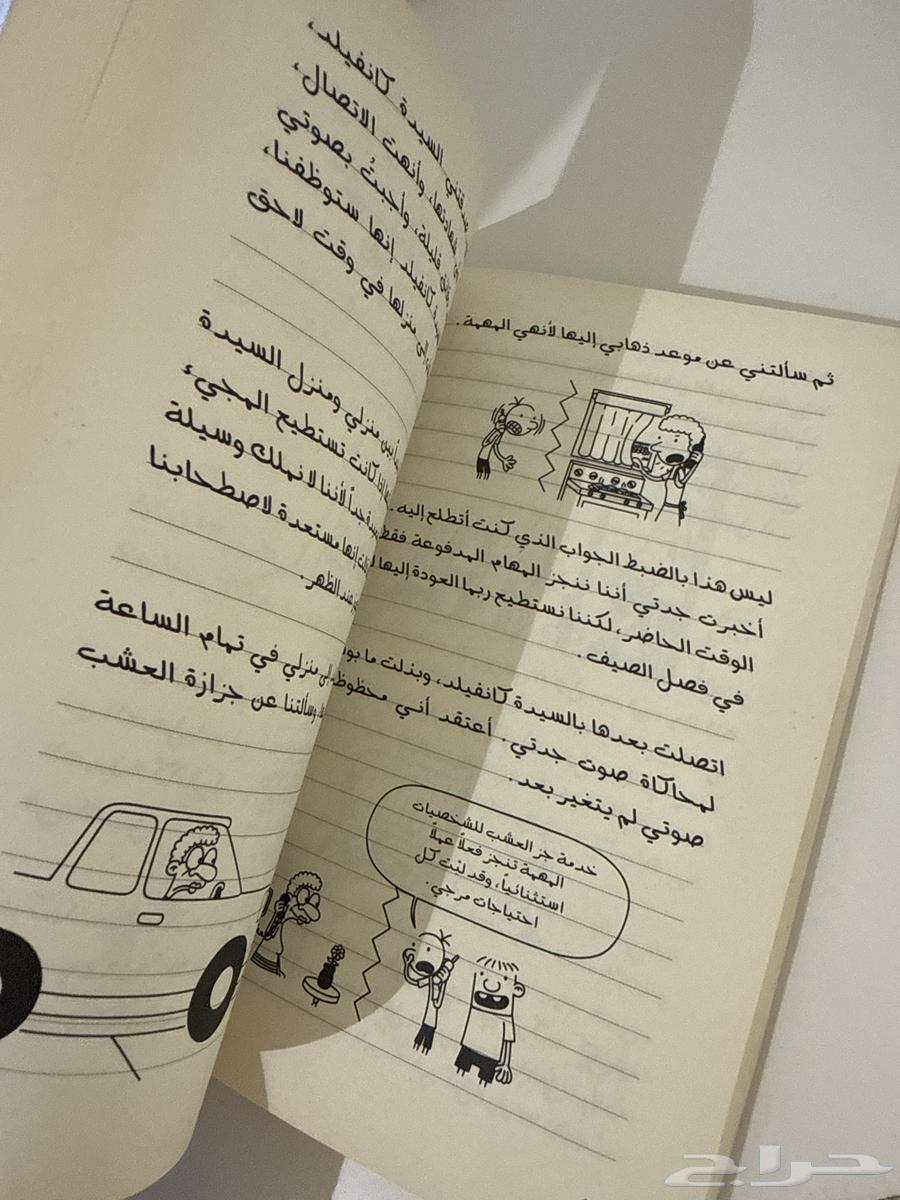 ثم سألتني عن موعد ذهابي إليها لأنهي المهمة.
ليس هذا بالضبط الجواب الذي كنت أتطلع إليه.
أخبرت جدتي أننا ننجز المهام المدفوعة فقط
الوقت الحاضر، لكننا نستطيع ربما العودة إليها
في فصل الصيف.
اتصلت بعدها بالسيدة كانفيلد، وبذلت ما
لمحاكاة صوت جدتي. أعتقد أني محظوظ
صوتي لم يتغير بعد.
خدمة جز العشب للشخصيات
المهمة تنجز فعلاً عملاً
استثنائياً، وقد لبّت كل
احتياجات مرجي.
السيدة كانفيلد،
وأنهت الاتصال،
قليلة، وأجبتُ بصوتي
كانفيلد إنها ستوظفنا،
إلى منزلها في وقت لاحق
بين منزلي ومنزل السيدة
إذا كانت تستطيع المجيء
جداً لأننا لا نملك وسيلة
إنها مستعدة لاصطحابنا
عند الظهر.
منزلي في تمام الساعة
وسألتنا عن جزازة العشب
حراج